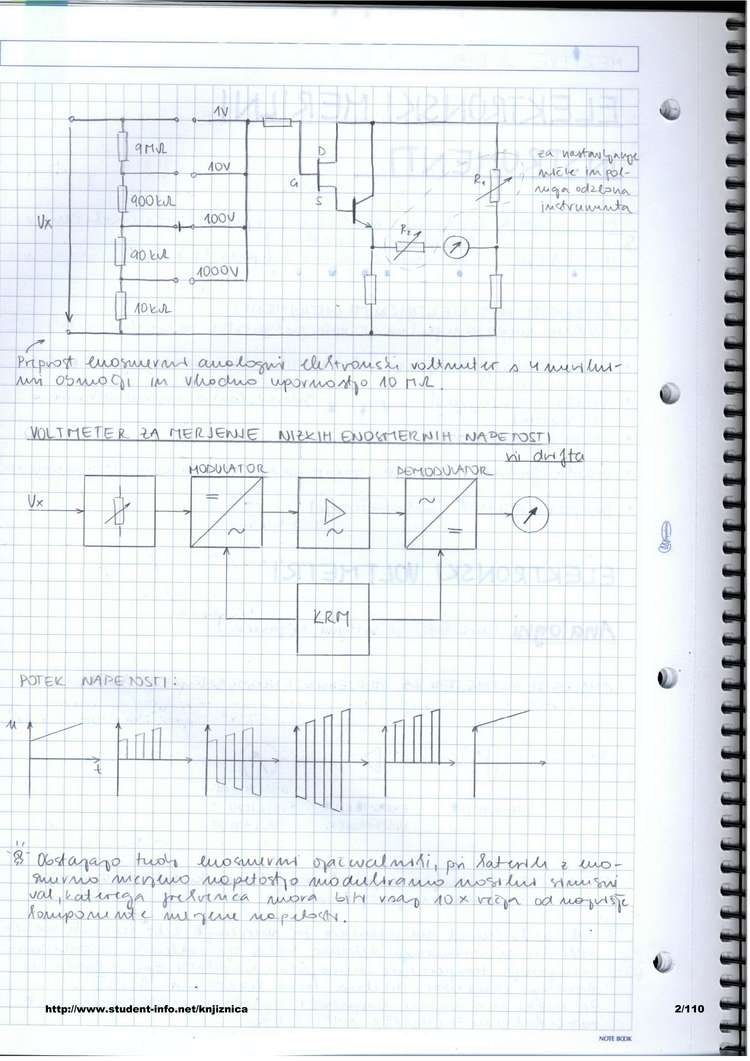 1V
9MΩ
10V
900kΩ
100V
90kΩ
1000V
10kΩ
Vx
D
G
S
R₁
R₂
za nastavljanje
ničle in pol-
nega odklona
instrumenta
Priprost enosmerni analogni elektronski voltmeter s 4 meril-
nimi območji in vhodno upornostjo 10 MΩ.
VOLTMETER ZA MERJENJE NIZKIH ENOSMERNIH NAPETOSTI
ni drifta
MODULATOR
DEMODULATOR
Vx
=
~
~
~
=
KRM
POTEK NAPETOSTI:
u
t
Obstajajo tudi enosmerni ojačevalniki, pri katerih z eno-
smerno merjeno napetostjo moduliramo nosilni sinusni
val, katerega frekvenca mora biti vsaj 10 x večja od najvišje
komponente merjene napetosti.
http://www.student-info.net/knjiznica
2/110
NOTE BOOK